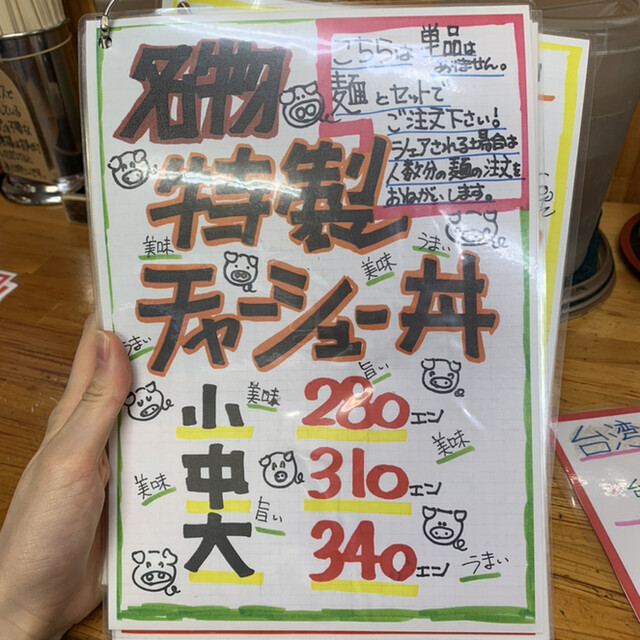 名物
こちらは 単品は
ありません。
麺とセットで
ご注文下さい!
シェアされる場合は
人数分の麺の注文を
おねがいします。
特製
美味
美味
うまい
チャーシュー丼
うまい
旨い
小 美味 280エン
美味
中 310エン
美味
旨い
大 340エン
うまい
台湾